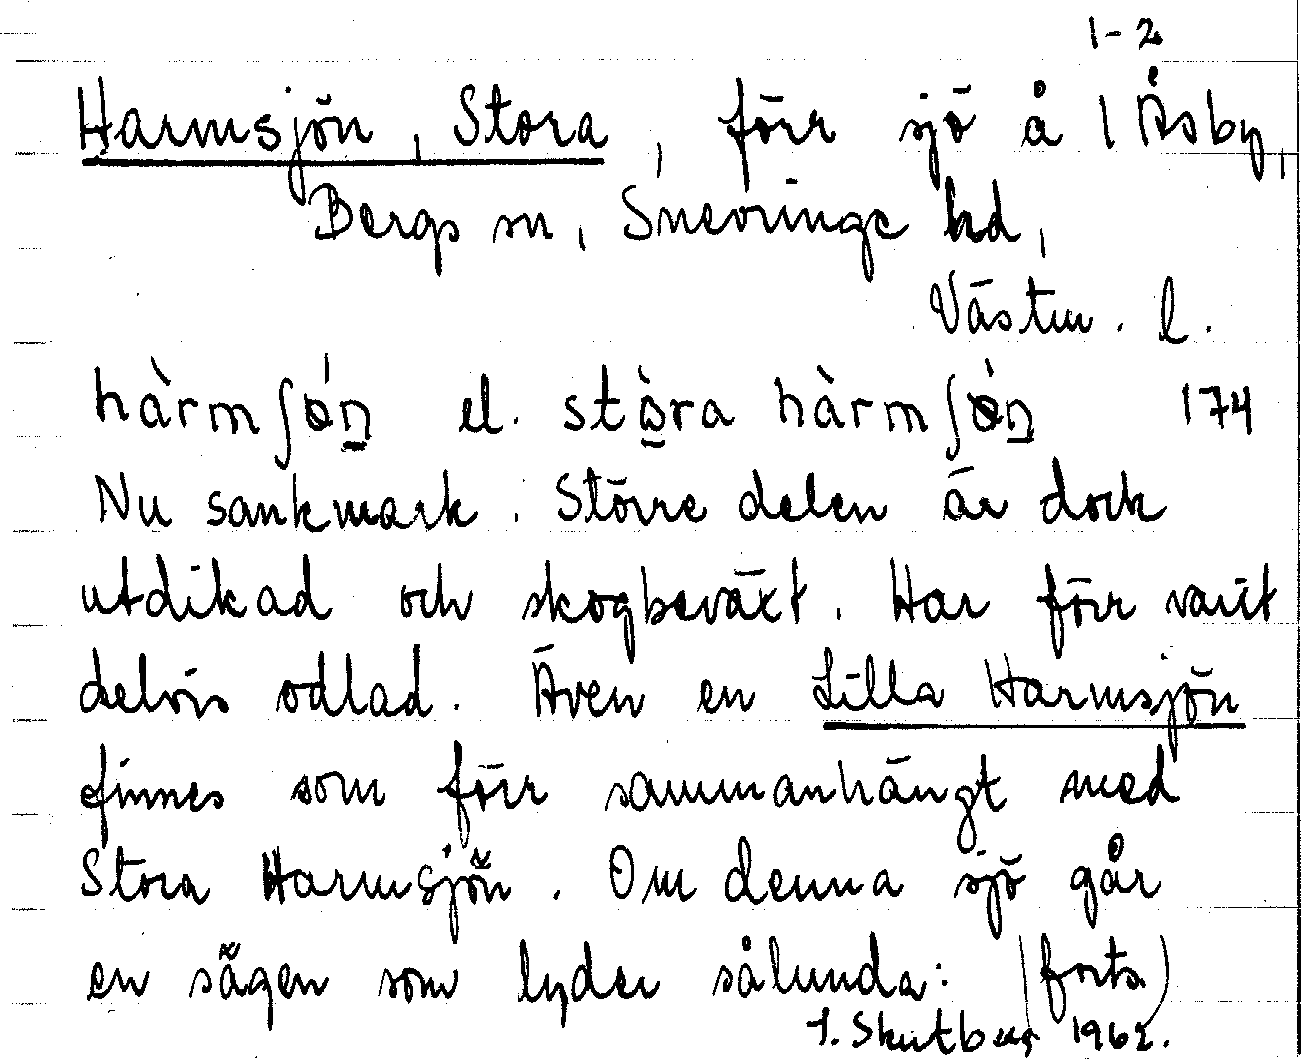 1-2
Harmsjön, Stora, förr sjö å 1 Åsby,
Bergs sn, Snevringe hd,
Västm. l.
hàrmʃǿn̲ el. stò̲ra hàrmʃǿn̲ 174
Nu sankmark. Större delen är dock
utdikad och skogbeväxt. Har förr varit
delvis odlad. Även en Lilla Harmsjön
finnes som förr sammanhängt med
Stora Harmsjön. Om denna sjö går
en sägen som lyder sålunda: (forts)
1962.